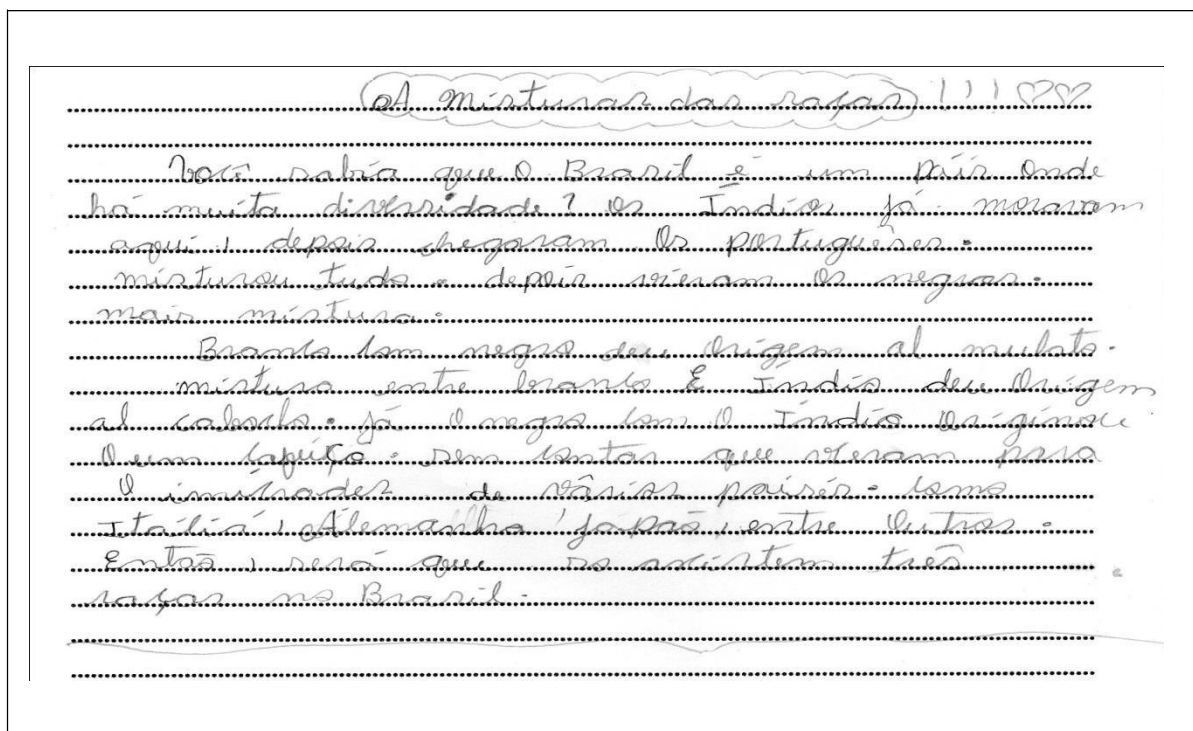 A misturas das raças !!!♡♡
Você sabia que o Brasil é um páis onde
há muita diversidade? os Índios já moravam
aqui, depois chegaram os portuguêses.
misturou tudo. depois vieram os negros.
mais mistura.
Branco com negro deu origem al mulato.
mistura entre branco E Índio deu origem
al caboclo. já o negro com o Índio originou
o um cafuiço. sem contar que vieram para
o imitrades de vários paisés. como
Itáliá, Alemanha, japaõ, entre outros.
Entaõ, será que so existem três
raças no Brasil.